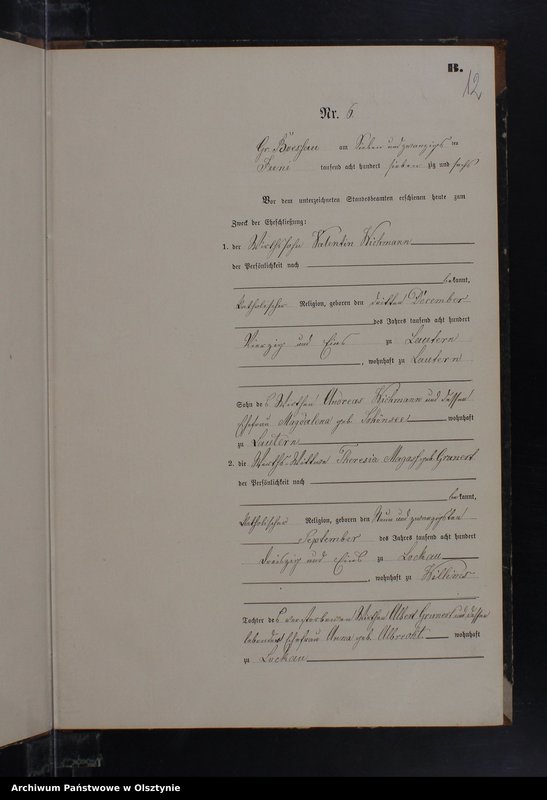 B.
12
Nr. 6
Gr. Boessau am Sieben und zwanzigsten
Juni tausend acht hundert sieben zig und sechs
Vor dem unterzeichneten Standesbeamten erschienen heute zum
Zweck der Eheschließung:
1. der Wirthssohn Valentin Wichmann
der Persönlichkeit nach
bekannt,
katholischer Religion, geboren den dritten December
des Jahres tausend acht hundert
Vierzig und Eins zu Lautern
, wohnhaft zu Lautern
Sohn des Wirthen Andreas Wichmann und dessen
Ehefrau Magdalena geb. Schönsee wohnhaft
zu Lautern
2. die Wirths-Wittwe Theresia geb. Grunert
der Persönlichkeit nach
bekannt,
katholischer Religion, geboren den Neun und zwanzigsten
September des Jahres tausend acht hundert
dreiszig und Eins zu Lockau
, wohnhaft zu Willims
Tochter des verstorbenen Wirthen Albert Grunert und dessen
lebender Ehefrau Anna geb. Albrecht wohnhaft
zu Lockau
Archiwum Państwowe w Olsztynie